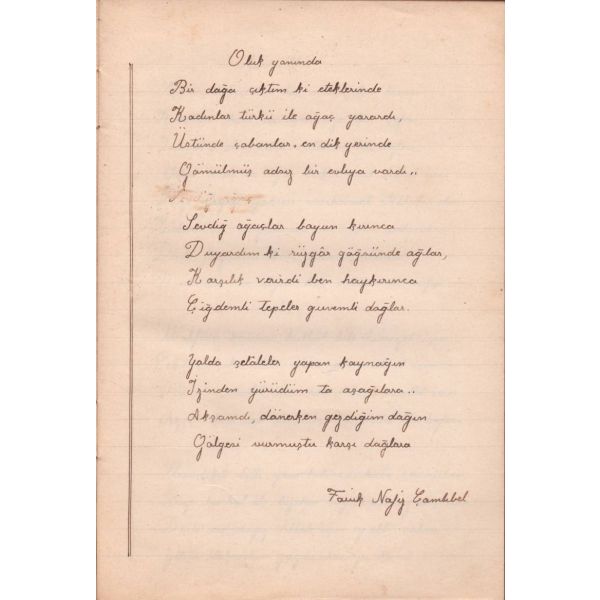 Oluk yanında
Bir dağa çıktım ki eteklerinde
Kadınlar türkü ile ağaç yarardı,
Üstünde çabanlar, en dik yerinde
Gömülmüş adsız bir evliya vardı..
Sevdiğ ağaç
Sevdiğ ağaçlar boyun kırınca
Duyardım ki rüzgâr göğsünde ağlar,
Karşılık verirdi ben haykırınca
Çiğdemli tepeler güvemli dağlar.
Yolda şelâleler yapan kaynağın
İzinden yürüdüm ta aşağılara..
Akşamdı, dönerken gezdiğim dağın
Gölgesi vurmuştu karşı dağlara
Faruk Nafiz Çamlıbel